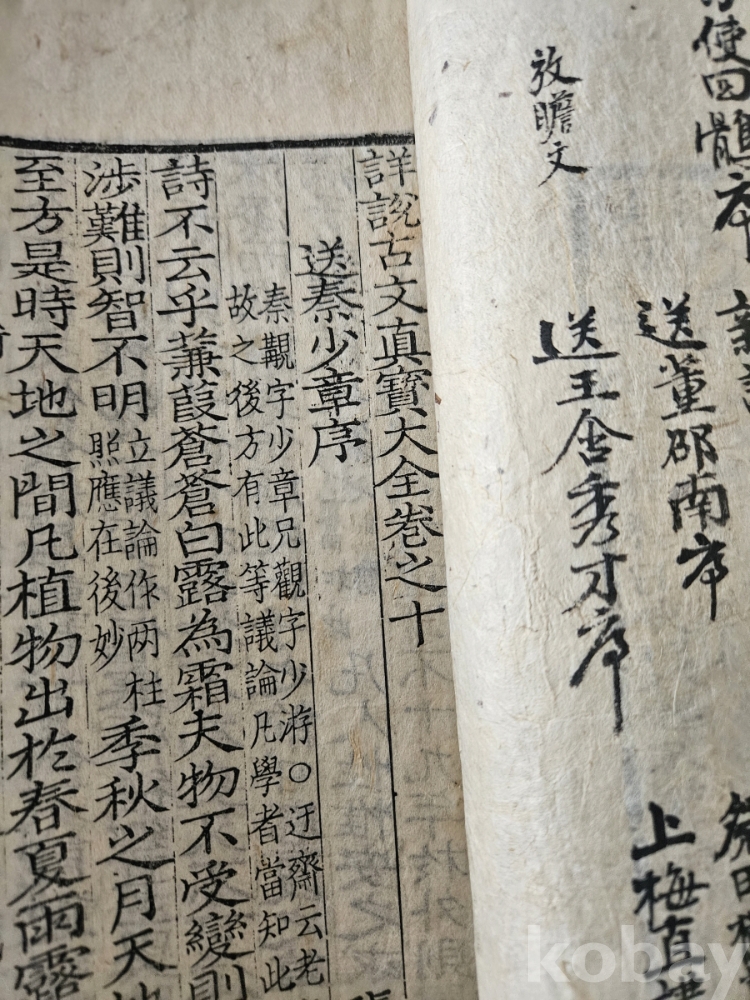 使四髓序
送董邵南序
上梅直講
放膽文
送王含秀才序
詳說古文真寶大全卷之十
送秦少章序
秦觀字少章兄觀字少游○迂齋云老
故之後方有此等議論凡學者當知此
詩不云乎蒹葭蒼蒼白露為霜夫物不受變則
涉難則智不明
立議論作两柱
照應在後妙
季秋之月天地
至方是時天地之間凡植物出於春夏雨露
kobay